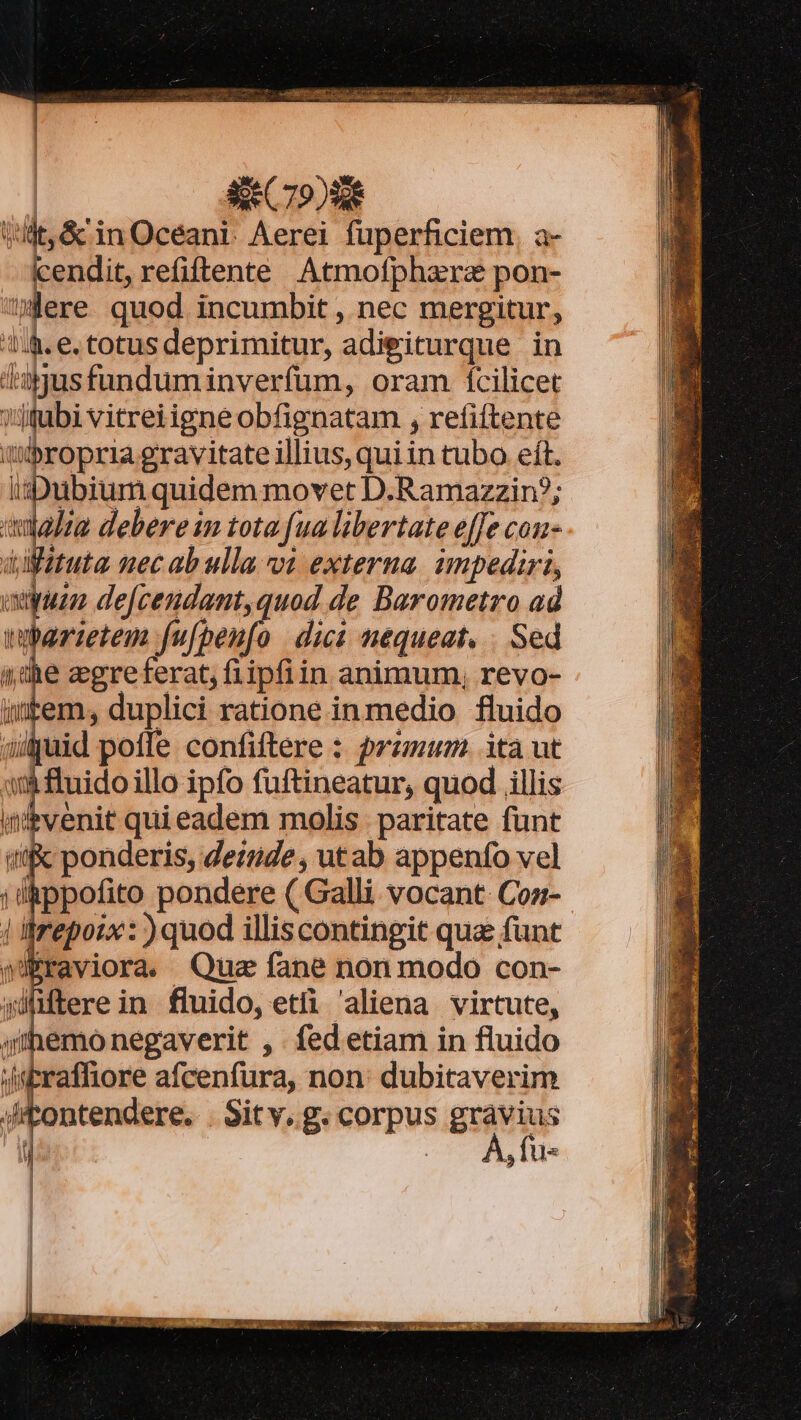 ( 79 )
&ſt, & in Oceani Aerei ſuperficiem a-
ſcendit, reſiſtente Atmoſphæræ pon-
dere quod incumbit, nec mergitur,
h. e. totus deprimitur, adigiturque in
fundum inverſum, oram ſcilicet
tubi vitrei igne obſignatam, reſiſtente
propria gravitate illius, qui in tubo eſt.
Dubium quidem movet D. Ramazzin⁹;
alia debere in tota ſua libertate eſſe con-
ſtituta nec ab ulla vi externa impediri,
quin deſcendant, quod de Barometro ad
parietem ſuſpenſo dici nequeat. Sed
ne ægre ferat, ſi ipſi in animum, revo-
cem, duplici ratione in medio fluido
quid poſſe conſiſtere: primum ita ut
a fluido illo ipſo ſuſtineatur, quod illis
evenit qui eadem molis paritate ſunt
& ponderis, deinde, ut ab appenſo vel
appoſito pondere (Galli vocant Con-
trepoix:) quod illis contingit quæ ſunt
graviora. Quæ ſane non modo con-
ſiſtere in fluido, etſi aliena virtute,
nemo negaverit, ſed etiam in fluido
craſſiore aſcenſura, non dubitaverim
contendere. Sit v. g. corpus gravius
A, ſu-